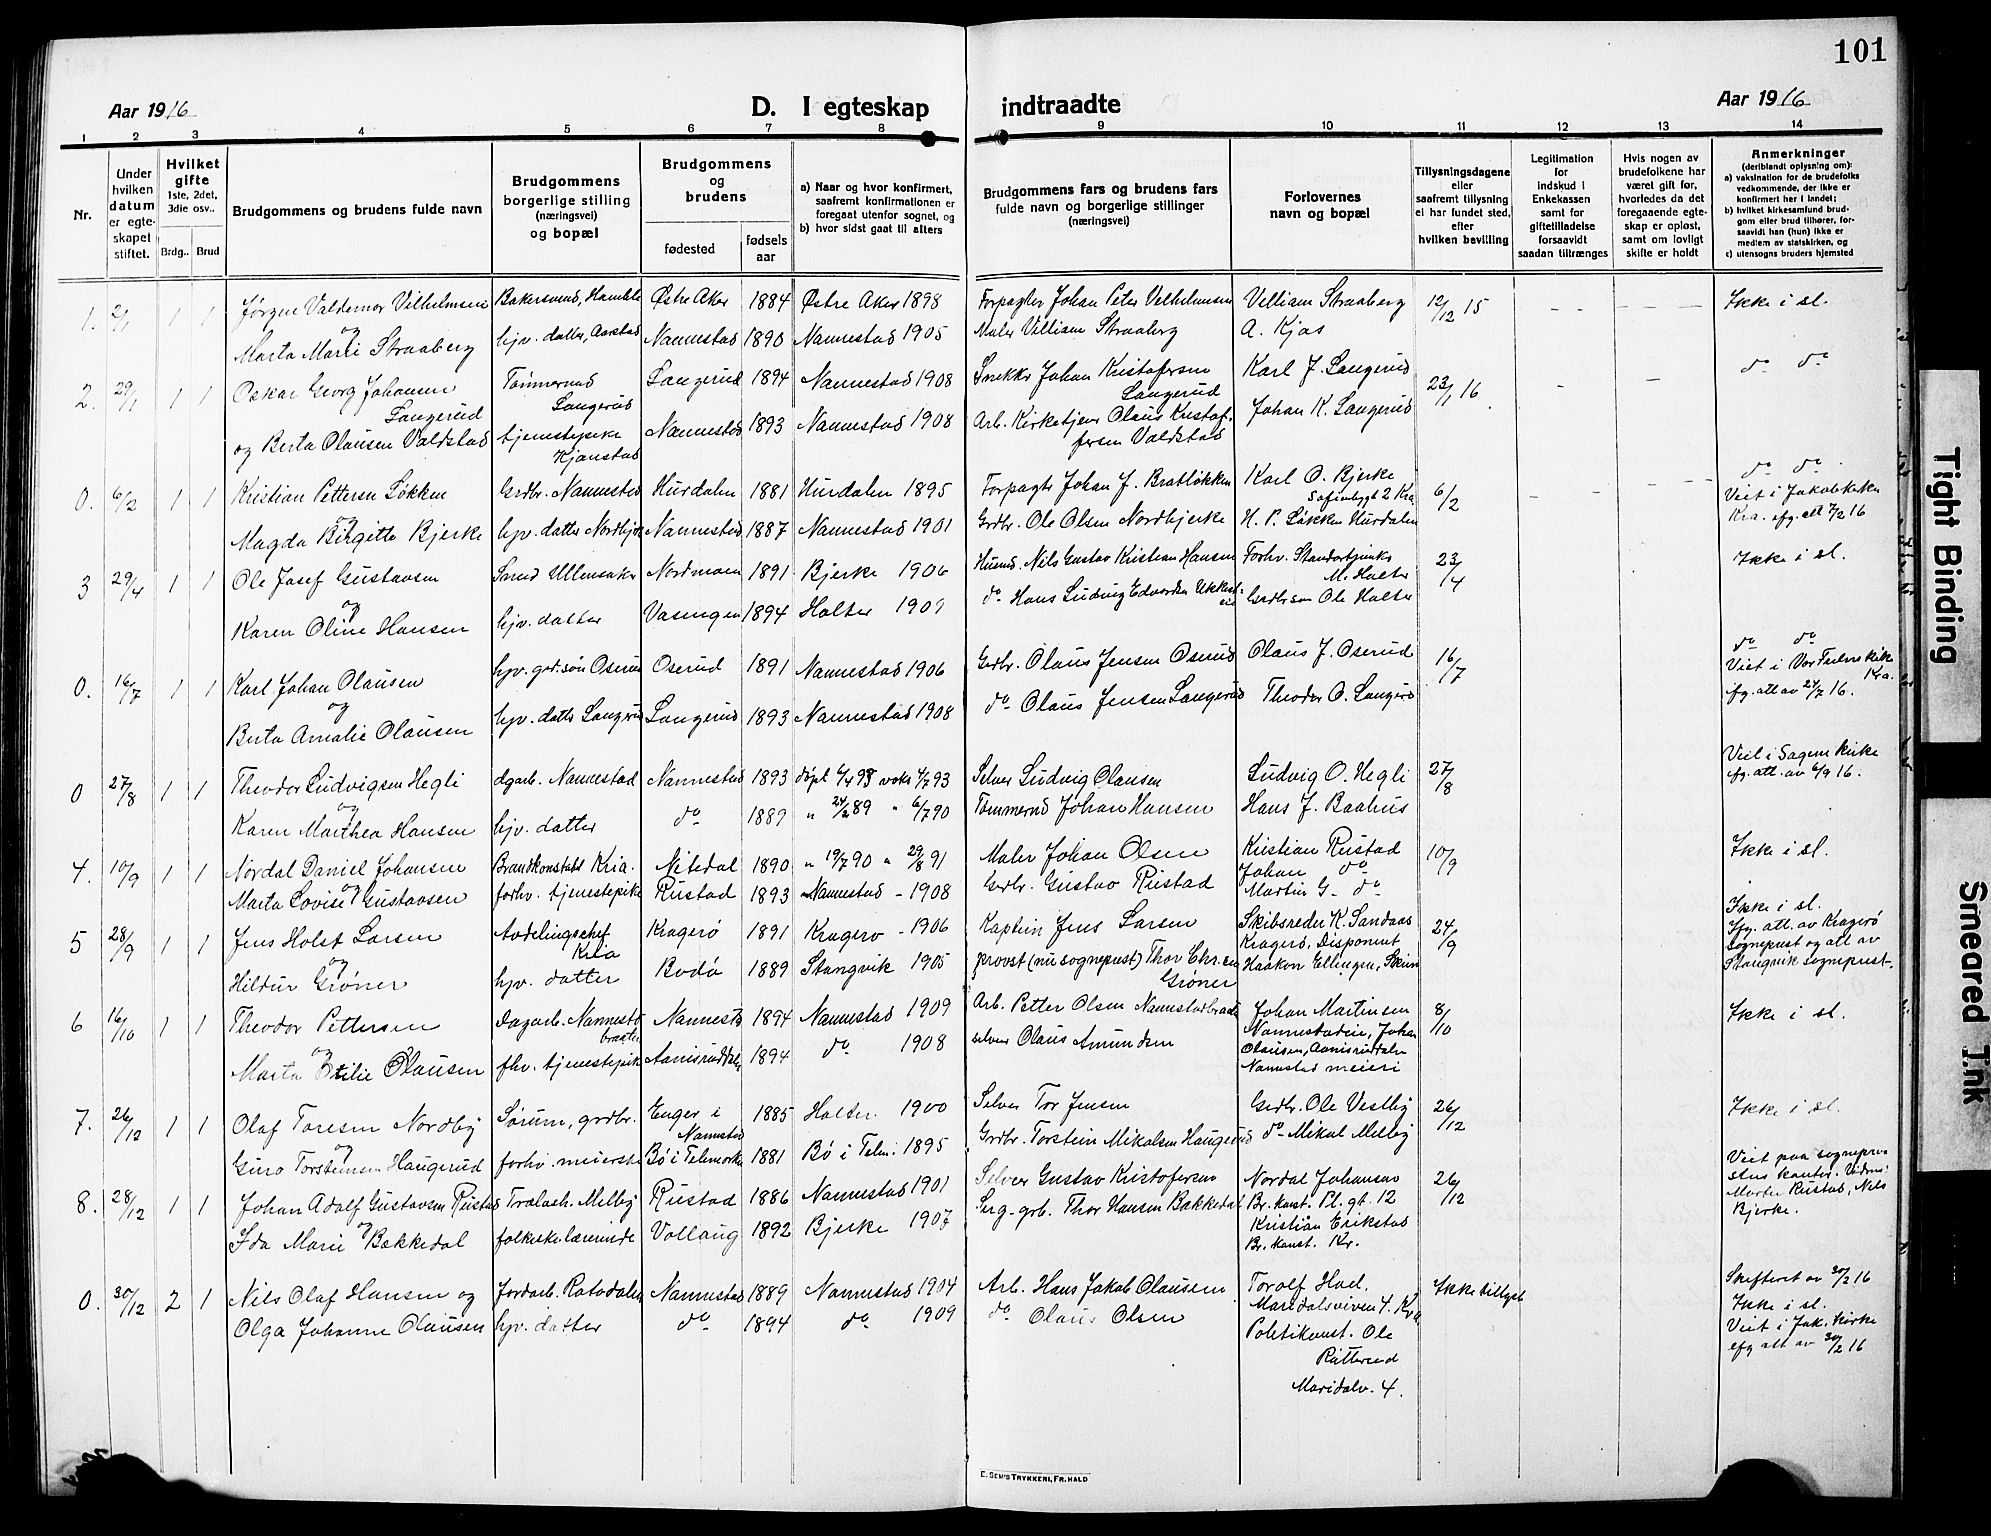 101
Aar 1916
D. I egteskap
indtraadte
Aar 1916
1 2 3 4 5 6 7 8 9 10 11 12 13 14
Nr.
Under hvilken datum er egteskapet stiftet.
Hvilket gifte 1ste, 2det, 3die osv..
Brdg.. Brud
Brudgommens og brudens fulde navn
Brudgommens borgerlige stilling (næringsvei) og bopæl
Brudgommens og brudens
fødested
fødsels aar
a) Naar og hvor konfirmert, saafremt konfirmationen er foregaat utenfor sognet, og
b) hvor sidst gaat til alters
Brudgommens fars og brudens fars fulde navn og borgerlige stillinger (næringsvei)
Forlovernes navn og bopæl
Tillysningsdagene eller saafremt tillysning ei har fundet sted, efter hvilken bevilling
Legitimation for indskud i Enkekassen samt for giftetilladelse forsaavidt saadan tiltrænges
Hvis nogen av brudefolkene har været gift før, hvorledes da det foregaaende egteskap er opløst, samt om lovligt skifte er holdt
Anmerkninger (deriblandt oplysning om):
a) vaksination for de brudefolks vedkommende, der ikke er konfirmert her i landet;
b) hvilket kirkesamfund brudgom eller brud tilhører, forsaavidt han (hun) ikke er medlem av statskirken, og
c) utensogns bruders hjemsted
1. 2/1 1 1 Jørgen Valdemar Vilhelmsen Østre Aker 1884 Østre Aker 1898 Forpagter Johan Peter Vilhelmsen Villiam Straaberg 12/12 15 - - - Ikke i sl.
og Marta Marie Straaberg hjv. datter, Aastad Nannestad 1890 Nannestad 1905 Maler Villiam Straaberg A. Kjos
2. 29/1 1 1 Oskar Georg Johansen Langerud Tømmermd Langerud Langerud 1894 Nannestad 1908 Snekker Johan Kristofersen Langerud Karl J. Langerud 23/1 16 - - do do
og Berta Olausen Valdstad tjenestepike Kjonstad Nannestad 1893 Nannestad 1908 Arb. Kirketjener Olaus Kristoffersen Valdstad Johan K. Langerud
0. 6/2 1 1 Kristian Pettersen Løkken Grdbr. Nannestad Hurdalen 1881 Hurdalen 1895 Forpagter Johan J. Bratløkken Karl O. Bjerke Sofienbygt 2 Kra 6/2 - - - do do.
og Magda Birgitte Bjerke hjv. datter Nordbjerke Nannestad 1887 Nannestad 1901 Grdbr. Ole Olsen Nordbjerke H. P. Løkken Hurdalen Viet i Jakobkirken Kra. efg. att 7/2 16
3 29/4 1 1 Ole Josef Gustavsen Smed Ullensaker Nordmoen 1891 Bjerke 1906 Husmd. Nils Gustav Kristian Hansen Forhv. Standartjunker M. Holter 23/4 Ikke i sl.
og Karen Oline Hansen hjv. datter Vasengen 1894 Holter 1909 do Hans Ludvig Edvardsen Grdbr søn Ole Holter
0. 16/7 1 1 Karl Johan Olausen hjv. grd. søn Oserud Oserud 1891 Nannestad 1906 Grdbr. Olaus Jensen Oserud Olaus J. Oserud 16/7 do do
og Berta Amalie Olausen hjv. datter Langerud Langerud 1893 Nannestad 1908 do Olaus Jensen Langerud Theodor O. Langerud Viet i Vor Frelsers kirke Kra. efg. att av 24/7 16.
0 27/8 1 1 Theodor Ludvigsen Hegli dgarb. Nannestad Nannestad 1893 døpt 6/4 93 vaks 4/7 93 Selver Ludvig Olausen Ludvig O. Hegli 27/8 Viet i Sagene kirke efg. att. av 6/9 16.
og Karen Marthea Hansen hjv. datter do 1889 " 24/2 89 " 6/7 90 Tømmermd Johan Hansen Hans J. Baahus
4. 10/9 1 1 Nordal Daniel Johansen Brandkonstabl Kria. Nitedal 1890 " 19/7 90 " 29/8 91 Maler Johan Olsen Kristian Rustad Johan do 10/9 Ikke i sl.
og Marta Lovise Gustavsen forhv. tjenestepike Rustad 1893 Nannestad - 1908 Grdbr. Gustav Rustad Martin G- do
5 28/9 1 1 Jens Holst Larsen Avdelingschef Kria Kragerø 1891 Kragerø - 1906 Kaptein Jens Larsen Skibsreder K. Sandaas Kragerø, Disponent 24/9 Ikke i sl. Efg. att. av Kragerø sogneprest og att av
og Hildur Grøner hjv. datter Bodø 1889 Stangvik 1905 provst (nu sogneprest) Thor Chr.sen Grøner Haakon Ellingsen, Skien Stangvik sogneprest-
6 16/10 1 1 Theodor Pettersen Dagarb. Nannestbraaten Nannestd 1894 Nannestad 1909 Arb. Petter Olsen Nannestadbraaten Johan Martinsen Nannestadeie, Johan 8/10 Ikke i sl.
og Marta Otilie Olausen fhv. tjenestepike Aamisruddalen 1894 do 1908 selveier Olaus Amundsen Olausen, Aamisruddalen Nannestad meieri
7. 26/12 1 1 Olaf Toresen Nordby Sørum, grdbr. Enger i Nannestad 1885 Holter. 1900 Selveier Tor Jensen Grdbr. Ole Vestby 26/12 Ikke i sl.
og Guro Torsteinsen Haugerud forhv. meierske Bø i Telemarken 1881 Bø i Telm. 1895 Grdbr. Torstein Mikalsen Haugerud do Mikal Melby
8. 28/12 1 1 Johan Adolf Gustavsen Rustad Melby Rustad 1886 Nannestad 1901 Selver Gustav Kristofersen Nordal Johansen Br. konst. Pl. gt. 12 26/12 Viet paa sogneprestens kontor. Vidner: Martin Rustad, Nils Bjerke.
og Ida Marie Bakkedal folkeskolelærerinde Vollaug 1892 Bjerke 1907 Serg- grb. Thor Hansen Bakkedal Kristian Erikstad Br. konst. Kr.
0. 30/12 2 1 Nils Olaf Hansen og Jordarb. Rotodalen Nannestad 1889 Nannestad 1904 Arb. Hans Jakob Olausen Torolf Hoel. Maridalsveien 4. Kra Ikke tillyst Skifteret av 30/2 16 Ikke i sl.
Olga Johanne Olausen hjv. datter do 1894 do 1909 do Olaus Olsen Politikonst. Ole Rutterud Maridalsv. 4. Viet i Jak. kirke efg att av 30/2 16
E. SEM'S TRYKKERI, FR.HALD
Tight Binding
Smeared Ink